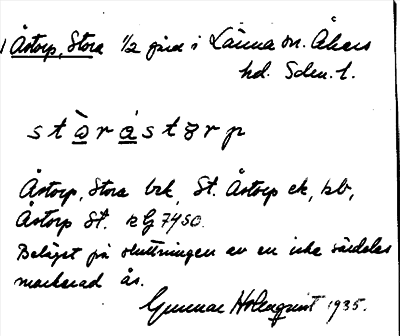 Åstorp, Stora 1/2 gård i Länna sn. Åkers
hd. Sdm. l.
stòrástorp
Åstorp, Stora bck, St. Åstorp ek, kb,
Åstorp St. kG 7450.
Beläget på sluttningen av en icke särdeles
markerad ås.
Gunnar Holmquist 1935.